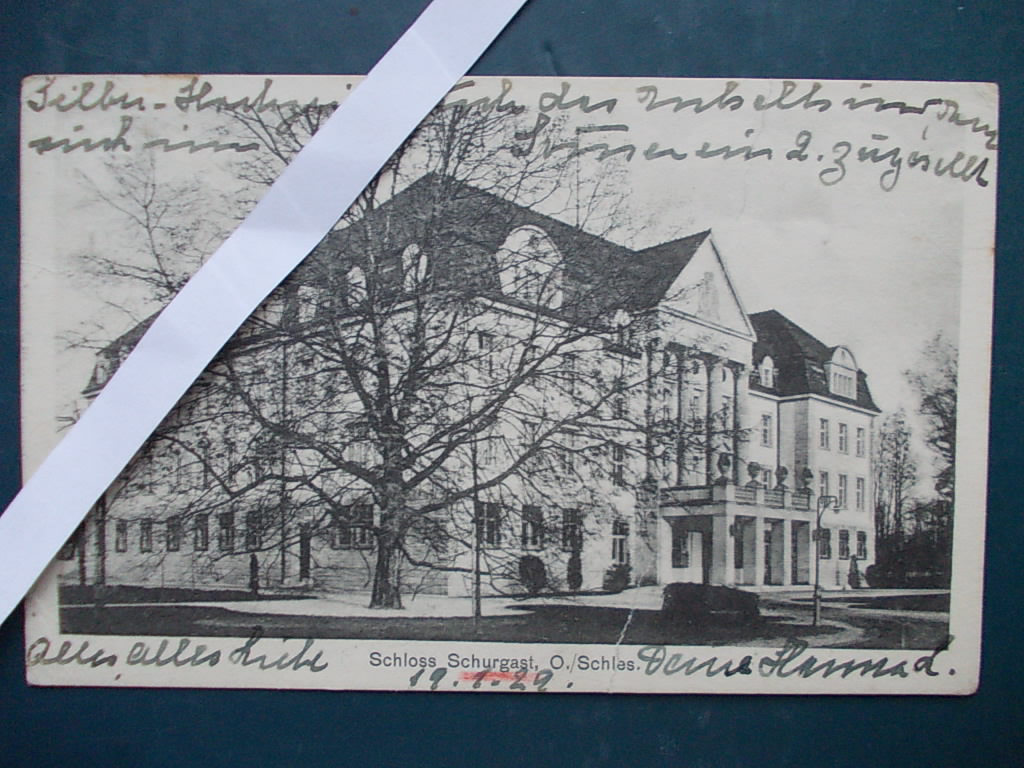 Silber-Hochzeit doch das
auch im Inneren ein 2. zugesellt
Alles, alles Liebe Schloss Schurgast, O./Schles. Deine Hanna L.
19.1.29.